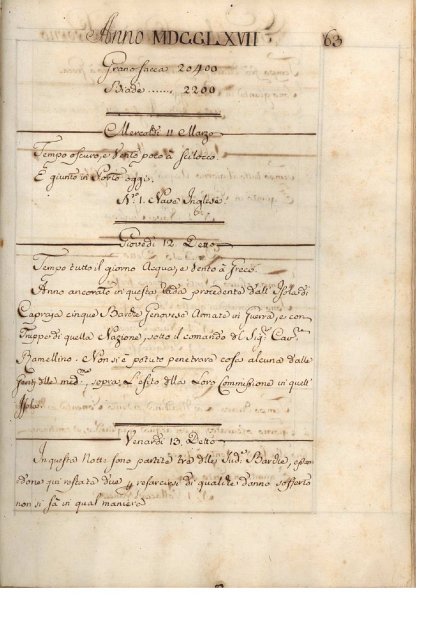 Anno MDCCLXVII 63
Grano sacca 20400
Biade ....... 2200
Mercoldì 11 Marzo
Tempo oscuro, e Vento poco à Scilocco.
È giunto in Porto oggi.
N.° 1. Nave Inglese
Giovedì 12. Detto
Tempo tutto il giorno Acqua, e Vento à Greco.
Anno ancorato in questa Rada procedente dall' Isola di
Capraja cinque Barche Genovesi Armate in Guerra, e con
Truppe di quella Nazione, sotto il comando di Sig.r Cav.re
Ramellino. Non si è potuto penetrare cosa alcuna dalle
Genti delle med.me sopra L'esito della Loro Commissione in quell'
Isola.
Venardì 13. Detto
In questa Notte sono partite tre delle Sud.e Barche, essen-
done qui restate due p refarcirsi di qualche danno sofferto
non si sà in qual maniera